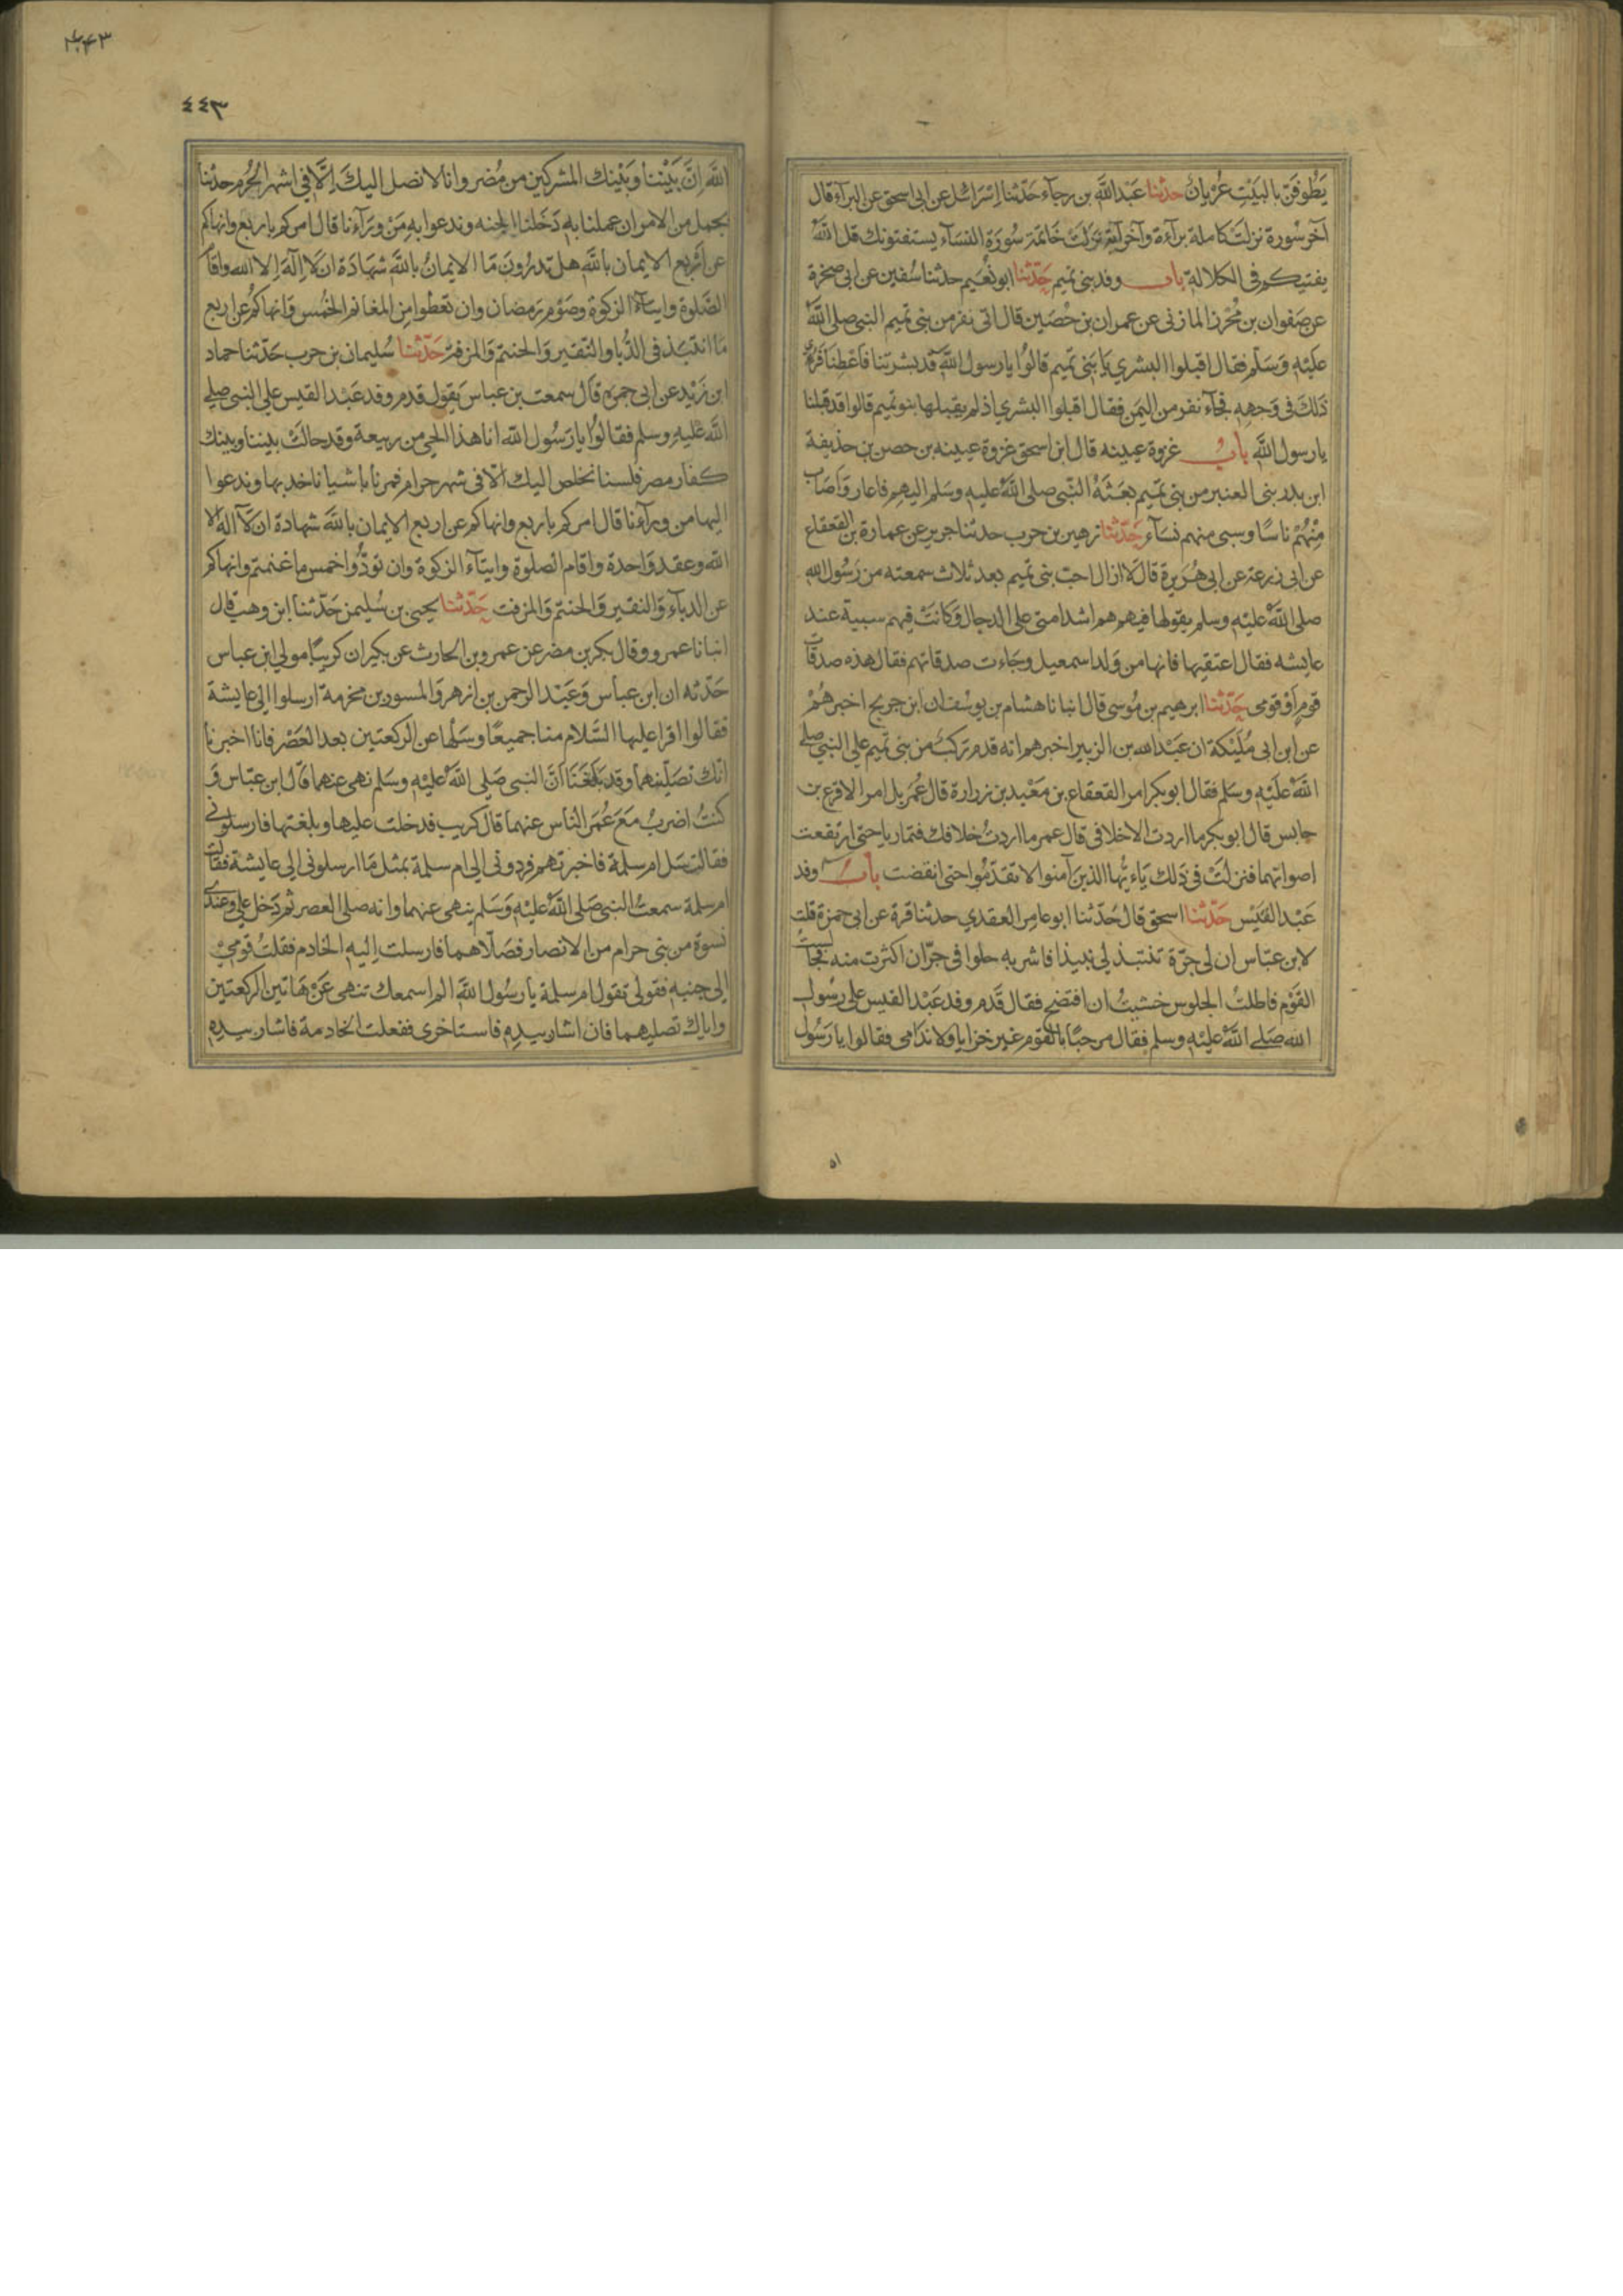 يَطُوفَنّ بالبَيْتِ عُرْيانٌ حدثنا عَبْدالله بن رجآء حَدّثنا اِسْرَائيل عن ابى اسحق عن البرآءقال
آخرسُورة نزلتْ كاملة برآءة وآخرآية نزلتْ خَاتمة سُورَة النسَآء يستفتونك قل اللّهُ
يفتيكم فى الكلالة باب وفدبنى تميم حَدّثنا ابونُعَيم حدثنا سُفين عن ابى صخرة
عن صَفوان بن مُحْرز المازنى عن عمران بن حُصَين قال اتى نفرمن بنى تميم النبى صلى اللّهُ
عَليْه وَسَلّم فقال اقبلوا البشرى يَا بَنى تَميم قالوُا يارسولُ اللّه قد بشرتنا فاَعْطِنَا فَرُؤِىَ
ذَلكَ فى وَجهِهِ فجآء نفرمن اليمَن فقال اقبلوا البشرى اذلم يقبلها بنوتميم قالوا قدقبلنا
يارسول اللَّه بابُ غزوة عيينه قال ابن اسحق غزوة عيينه بن حصن بن حذيفة
ابن بدر بنى العنبر من بنى تَميم بعَثهُ النّبى صلى اللّهُ عليه وسَلم اليهم فاعار وَاَصَابَ
مِنْهُمْ ناسًا وسبى منهم نسَآء حَدّثنا زهير بن حرب حدثنا جرير عن عمارة بن القعقاع
عن ابى زرعة عن ابى هُرَيرة قال لا ازال احبّ بنى تميم بعد ثلاث سمعته من رَسُول اللّه
صلى اللّهُ عليْه وسلم يقولها فيهم هم اشدامتى على الدجال وَكانَتْ فيهم سبية عند
عايشه فقال اعتقيها فانها من وَلداسمعيل وجَاءت صدقاتهم فقال هذه صدقات
قومٍ اَوْ قومى حَدّثنا ابرهيم بن مُوسى قال انبانا هشام بن يوسُف ان ابن جريج اخبرهُمْ
عن ابن ابى مُلَيْكة ان عَبْداللّه بن الزبير اخبرهم انه قدم رَكبٌ من بنى تميم على النبى صلى
اللّهُ عَليْه وسَلم فقال ابوبكر امر القعقاع بن مَعْبد بن زرارة قال عُمَر بل امر الاقرع بن
حابس قال ابوبكر ما اردت الا خلافى قال عمر ما اردتُ خلافك فتماريا حتى ارتفعت
اصواتهما فنزلتْ فى ذَلك يَاءَيُّها الذين آمنوا لا تقدّمُوا حتى انقضت بابُ وفد
عَبْد القَيْس حَدّثنا اسحق قال حَدّثنا ابوعامِر العقدي حدثنا قرة عن ابى جمرة قلت
لابن عبّاس ان لى جَرّة تنتبذ لى نبيذا فاشربه حلوا فى جرّ ان اكثرت منه فجالستُ
القَوْم فاطلتُ الجلوس خشيتُ ان افتضح فقال قَدم وفد عَبْد القيس على رسُول
اللّه صَلى اللّهُ عليْه وسلم فقال مرحبًا بالقوم غير خزايا ولا نَدَامى فقالوا يارَسُول
١٥
٤٤٣
٤٤٣
اللَّه اِنَّ بَيْننا وبَيْنك المشركين من مُضر وانا لا نصل اليكَ اِلّا فى اشهر الحُرُم حدثنا
بجمل من الامر ان عملنا به دَخلنا الجنه وندعوا به مَنْ وَرَآءنا قال امركم باربع وانهاكم
عن اَربع الايمان باللّه هل تدرُونَ مَا الايمانُ باللّه شهَادَة ان لا اِلَهَ اِلا اللّه واقام
الصَّلوة وايتآء الزكوة وصَوْم رَمضان وان تعْطوا من المغانم الخُمُس وَانهاكم عن اربع
مَا انتبَذ فى الدُّبا والنّقير وَالحنتم وَالمزفت حَدّثنا سُليمان بن حرب حَدّثنا حماد
ابن زَيْد عن ابى جمرة قال سمعت بن عباس يَقول قدم وفد عَبْد القيس على النبى صلى
اللّهُ عَليْهِ وسلم فقالوُا يارَسُول اللّه انا هذا الحى من ربيعة وقد حالتْ بيننا وبينك
كفار مضر فلسنا نخلص اليك الّا فى شهر حرام فمرنا باشيا ناخذ بها وندعوا
اليها من ورآءنا قال امركم باربع وانهاكم عن اربع الايمان باللَّه شهادة ان لآ اله الا
اللّه وعقد وَاحدة واقام الصلوة وايتآء الزكوة وان تؤدُّوا خمس ما غنمتم وانهاكم
عن الدبآء وَالنقير وَالحنتم وَالمزفت حَدّثنا يحيى بن سُليمن حَدّثنا ابن وهب قال
انبانا عمرو وقال بكر بن مضر عن عمرو بن الحارث عن بكير ان كريبًا مولى ابن عباس
حَدّثه ان ابن عباس وَعَبْد الرحمن بن ازهر وَالمسور بن مخرمة ارسلوا الى عايشة
فقالوا اقرا عليها السَّلام منا جميعًا وسَلها عن الركعتين بعد العَصْر فانا اخبرنا
انّك تصَلّيْهما وقد بَلَغَنَا اَنَّ النبى صَلى اللّهُ عليْه وسَلم نهى عنهما قال ابن عبّاس وَ
كنتُ اضربُ مَعَ عُمَر النّاس عنهما قال كريب فدخلت عليها وبلغتها فارسلونى
فقالت سَل ام سلمة فاخبرتهم فردونى الى ام سلمة بمثل مَا ارسلونى الى عايشة فقالت
ام سلمة سمعتُ النبى صَلى اللّهُ عليْه وَسَلم ينهى عنهما وانه صلى العصر ثم دَخل على وعندى
نسْوَة من بنى حرام من الانصار فصَلّاهما فارسلت اليه الخادم فقلتُ قومى
الى جنبه فقولى تقول ام سلمة يا رسُول اللَّه الم اسمعك تنهى عَنْ هَاتين الركعتين
واراك تصليهما فان اشار بيده فاستاخرى ففعلت الخادمة فاشار بيده